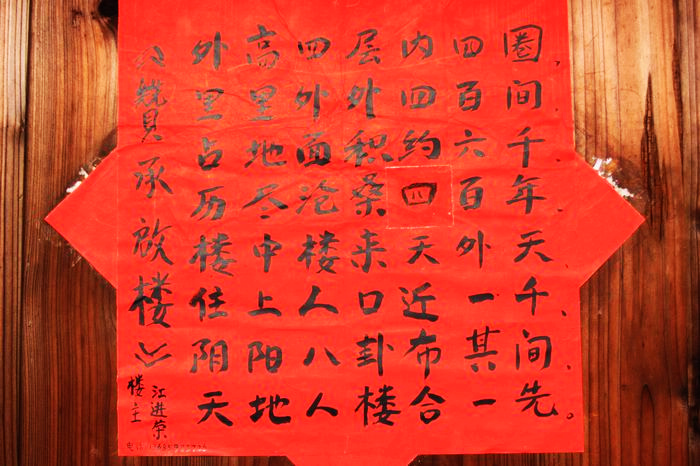 《赞承啟楼》
外高四层内四圈，
里里外外四百间，
占地面积约六千，
历尽沧桑四百年，
楼中楼来天外天，
住上人口近一千，
阴阳八卦布其间，
天地人楼合一先。
楼主
江进荣